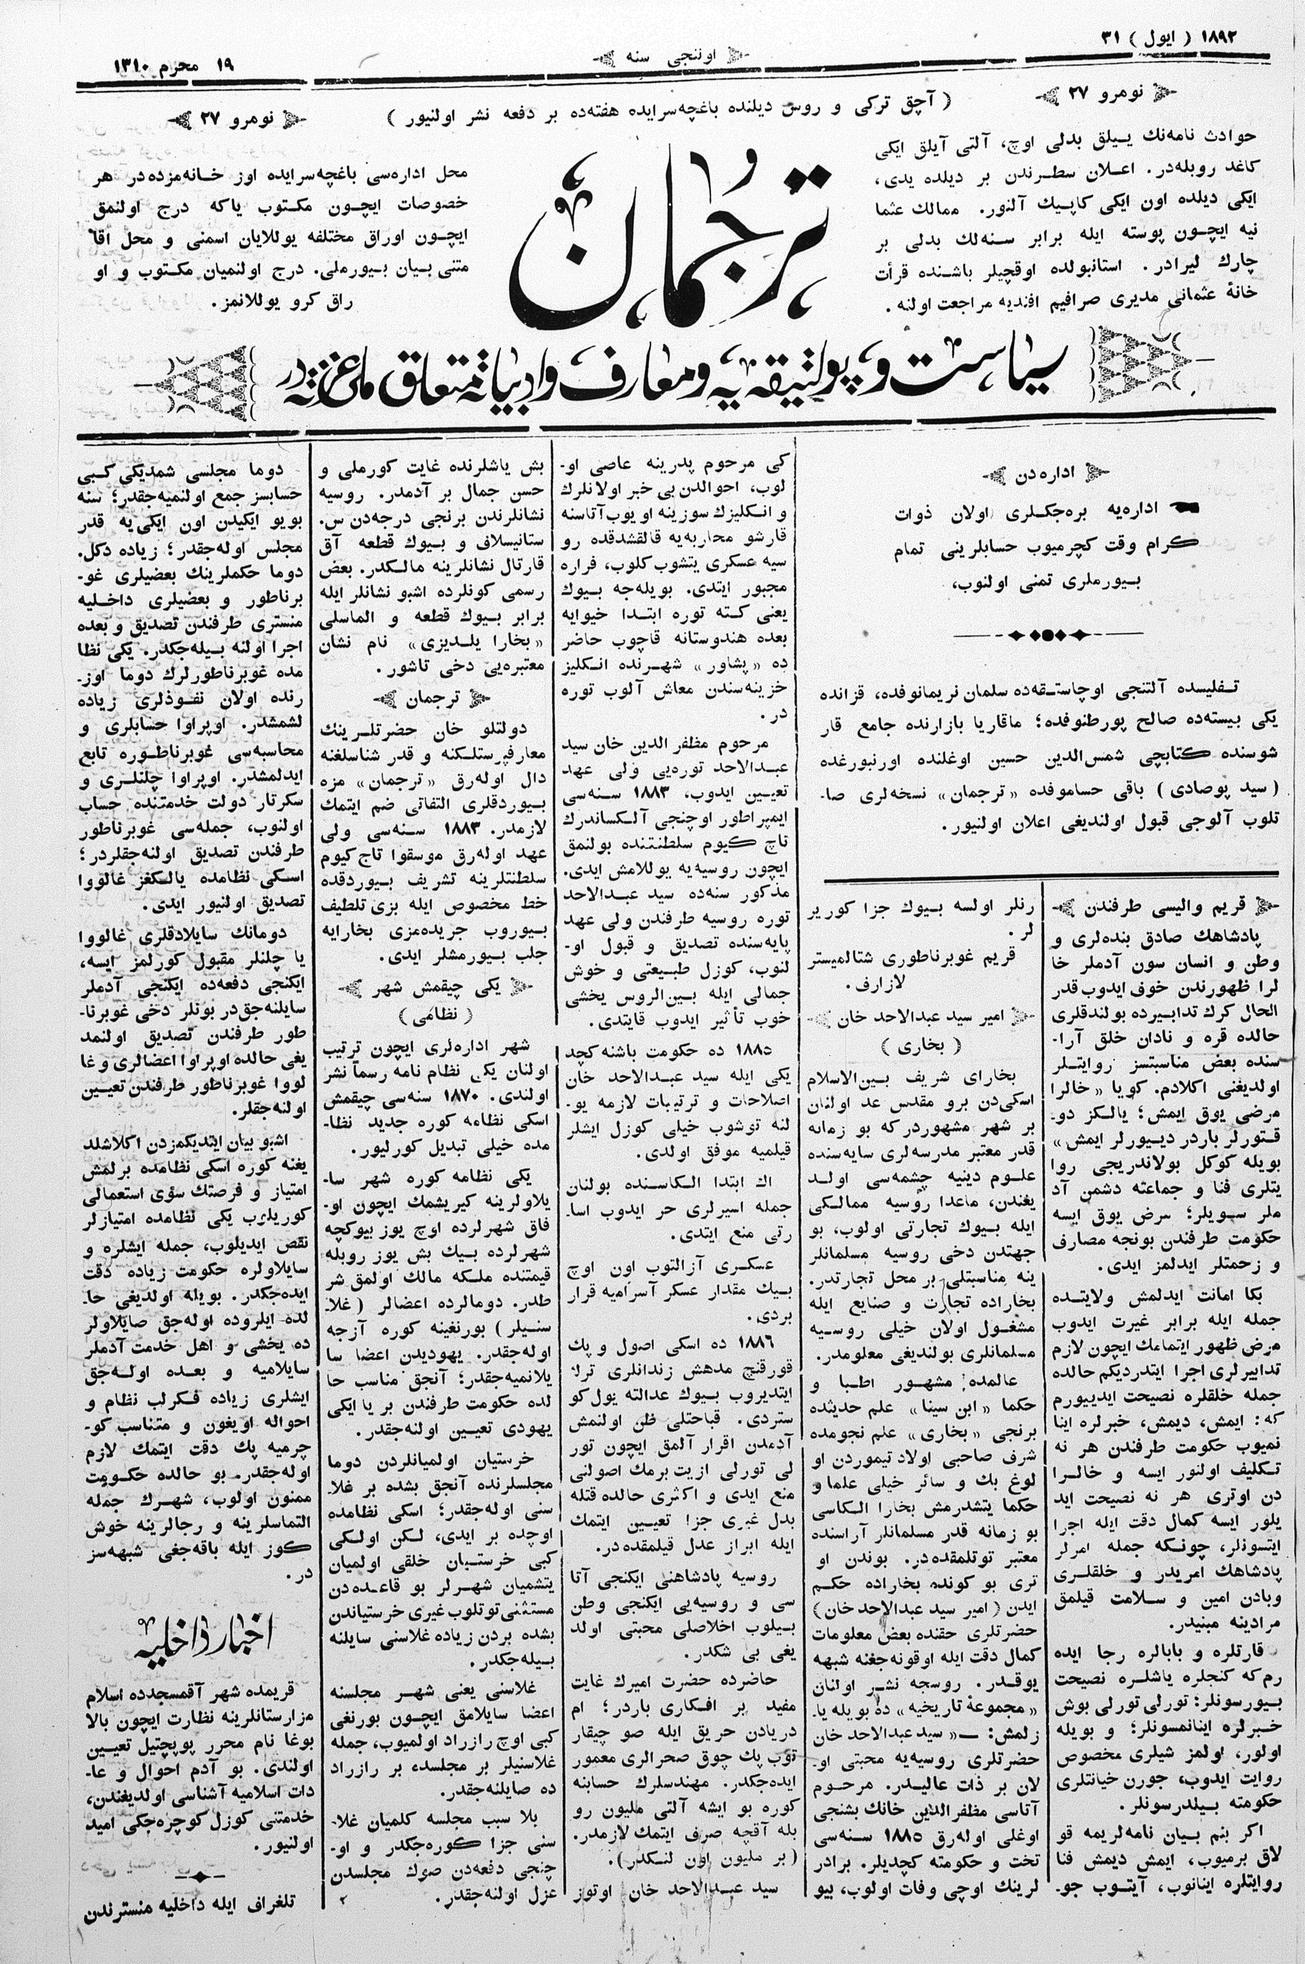 ١٨٩٢ ( ایول ) ٣١
اوننجی سنه
١٩ محرم ١٣١٠
نومرو ٢٧
( آچق ترکی و روس دیلنده باغچه‌سرایده هفته‌ده بر دفعه نشر اولنیور )
نومرو ٢٧
حوادث نامه‌نك ییلق بدلی اوچ، آلتی آیلق ایکی
کاغد روبله‌در. اعلان سطرندن بر دیلده یدی،
ایکی دیلده اون ایکی کاپیك آلنور. ممالك عثما
نیه ایچون پوسته ایله برابر سنه‌لك بدلی بر
چارك لیرادر. استانبولده اوقچیلر باشنده قرأت
خانهٔ عثمانی مدیری صرافیم افندیه مراجعت اولنه.
ترجمان
محل اداره‌سی باغچه‌سرایده اوز خانه‌مزده‌در هر
خصوصات ایچون مکتوب یاکه درج اولنمق
ایچون اوراق مختلفه یوللایان اسمنی و محل اقا
متنی بیان بیورملی. درج اولنمیان مکتوب و او
راق کرو یوللانمز.
سیاست و پولتیقه‌یه و معارف و ادبیاته متعلق ملی غزته‌در
اداره‌دن
اداره‌یه بره‌جکلری اولان ذوات
کرام وقت کچرمیوب حسابلرینی تمام
بیورملری تمنی اولنوب،
تفلیسده آلتنجی اوچاستقه‌ده سلمان نریمانوفده، قزانده
یکی بیسته‌ده صالح پورطنوفده؛ ماقاریا بازارنده جامع قار
شوسنده کتابچی شمس‌الدین حسین اوغلنده اورنبورغده
( سید پوصادی ) باقی حساموفده «ترجمان» نسخه‌لری صا-
تلوب آلوجی قبول اولندیغی اعلان اولنیور.
قریم والیسی طرفندن
پادشاهك صادق بنده‌لری و
وطن و انسان سون آدملر خا
لرا ظهورندن خوف ایدوب قدر
الحال کرك تدابیرده بولندقلری
حالده قره و نادان خلق آرا-
سنده بعض مناسبتسز روایتلر
اولدیغنی اکلادم. کویا «خالرا
مرضی یوق ایمش؛ یالکز دو-
قتورلر باردر دیورلر ایمش»
بویله کوکل بولاندریجی روا
یتلری فنا و جماعته دشمن آد
ملر سویلر؛ مرض یوق ایسه
حکومت طرفندن بونجه مصارف
و زحمتلر ایدلمز ایدی.
بکا امانت ایدلمش ولایتده
جمله ایله برابر غیرت ایدوب
مرض ظهور ایتمامك ایچون لازم
تدابیرلری اجرا ایتدردیکم حالده
جمله خلقلره نصیحت ایدییورم
که: ایمش، دیمش، خبرلره اینا
نمیوب حکومت طرفندن هر نه
تکلیف اولنور ایسه و خالرا
دن اوتری هر نه نصیحت اید
یلور ایسه کمال دقت ایله اجرا
ایتسونلر، چونکه جمله امرلر
پادشاهك امریدر و خلقلری
وبادن امین و سلامت قیلمق
مرادینه مبنیدر.
قارتلره و بابالره رجا ایده
رم که کنجلره یاشلره نصیحت
بیورسونلر؛ تورلی تورلی بوش
خبرلره اینانمسونلر؛ و بویله
اولور، اولمز شیلری مخصوص
روایت ایدوب، جورن خیانتلری
حکومته بیلدرسونلر.
اکر بنم بیان نامه‌لریمه قو
لاق برمیوب، ایمش دیمش فنا
روایتلره اینانوب، آیتوب جو-
رنلر اولسه بیوك جزا کوریر
لر.
قریم غوبرناطوری شتالمیستر
لازارف.
امیر سید عبدالاحد خان
( بخاری )
بخارای شریف بین‌الاسلام
اسکی‌دن برو مقدس عد اولنان
بر شهر مشهوردرکه بو زمانه
قدر معتبر مدرسه‌لری سایه‌سنده
علوم دینیه چشمه‌سی اولد
یغندن، ماعدا روسیه ممالکی
ایله بیوك تجارتی اولوب، بو
جهتدن دخی روسیه مسلمانلر
ینه مناسبتلی بر محل تجارتدر.
بخاراده تجارت و صنایع ایله
مشغول اولان خیلی روسیه
مسلمانلری بولندیغی معلومدر.
عالمده مشهور اطبا و
حکما «ابن سینا» علم حدیثده
برنجی «بخاری» علم نجومده
شرف صاحبی اولاد تیموردن او
لوغ بك و سائر خیلی علما و
حکما یتشدرمش بخارا الکاسی
بو زمانه قدر مسلمانلر آراسنده
معتبر توتلمقده‌در. بوندن او
تری بو کونده بخاراده حکم
ایدن (امیر سید عبدالاحد خان)
حضرتلری حقنده بعض معلومات
کمال دقت ایله اوقونه‌جغنه شبهه
یوقدر. روسجه نشر اولنان
«مجموعهٔ تاریخیه» ده بویله یا-
زلمش: — «سید عبدالاحد خان
حضرتلری روسیه‌یه محبتی او-
لان بر ذات عالیدر. مرحوم
آتاسی مظفرالدین خانك بشنجی
اوغلی اوله‌رق ١٨٨٥ سنه‌سی
تخت و حکومته کچدیلر. برادر
لرینك اوچی وفات اولوب، بیو
کی مرحوم پدرینه عاصی او-
لوب، احوالدن بی خبر اولانلرك
و انکلیزك سوزینه اویوب آتاسنه
قارشو محاربه‌یه قالقشدقده رو
سیه عسکری یتشوب کلوب، فراره
مجبور ایتدی. بویله‌جه بیوك
یعنی کته توره ابتدا خیوایه
بعده هندوستانه قاچوب حاضر
ده «پشاور» شهرنده انکلیز
خزینه‌سندن معاش آلوب توره
در.
مرحوم مظفر الدین خان سید
عبدالاحد توره‌یی ولی عهد
تعیین ایدوب، ١٨٨٣ سنه‌سی
ایمپراطور اوچنجی آلکساندرك
تاج کیوم سلطنتنده بولنمق
ایچون روسیه‌یه یوللامش ایدی.
مذکور سنه‌ده سید عبدالاحد
توره روسیه طرفندن ولی عهد
پایه‌سنده تصدیق و قبول او-
لنوب، کوزل طبیعتی و خوش
جمالی ایله بین‌الروس یخشی
خوب تأثیر ایدوب قایتدی.
١٨٨٥ ده حکومت باشنه کچد
یکی ایله سید عبدالاحد خان
اصلاحات و ترتیبات لازمه یو-
لنه توشوب خیلی کوزل ایشلر
قیلمیه موفق اولدی.
اك ابتدا الکاسنده بولنان
جمله اسیرلری حر ایدوب اسا-
رتی منع ایتدی.
عسکری آزالتوب اون اوچ
بیك مقدار عسکر آسرامیه قرار
بردی.
١٨٨٦ ده اسکی اصول و پك
قورقنچ مدهش زندانلری ترك
ایتدیروب بیوك عدالته یول کو
ستردی. قباحتلی ظن اولنمش
آدمدن اقرار آلمق ایچون تور
لی تورلی اذیت برمك اصولنی
منع ایدی و اکثری حالده قتله
بدل غیری جزا تعیین ایتمك
ایله ابراز عدل قیلمقده‌در.
روسیه پادشاهنی ایکنجی آتا
سی و روسیه‌یی ایکنجی وطن
بیلوب اخلاصلی محبتی اولد
یغی بی شکدر.
حاضرده حضرت امیرك غایت
مفید بر افکاری باردر؛ ام
دریادن حریق ایله صو چیقار
توب پك چوق صحرالری معمور
ایده‌جکدر. مهندسلرك حسابنه
کوره بو ایشه آلتی ملیون رو
بله آقچه صرف ایتمك لازمدر.
(بر ملیون اون لنکدر).
سید عبدالاحد خان اوتوز
بش یاشلرنده غایت کورملی و
حسن جمال بر آدمدر. روسیه
نشانلرندن برنجی درجه‌دن س.
ستانیسلاف و بیوك قطعه آق
قارتال نشانلرینه مالکدر. بعض
رسمی کونلرده اشبو نشانلر ایله
برابر بیوك قطعه و الماسلی
«بخارا یلدیزی» نام نشان
معتبره‌یی دخی تاشور.
ترجمان
دولتلو خان حضرتلرینك
معارفپرستلکنه و قدر شناسلغنه
دال اوله‌رق «ترجمان» مزه
بیوردقلری التفاتی ضم ایتمك
لازمدر. ١٨٨٣ سنه‌سی ولی
عهد اوله‌رق موسقوا تاج کیوم
سلطنتلرینه تشریف بیوردقده
خط مخصوص ایله بزی تلطیف
بیوروب جریده‌مزی بخارایه
جلب بیورمشلر ایدی.
یکی چیقمش شهر
( نظامی )
شهر اداره‌لری ایچون ترتیب
اولنان یکی نظام نامه رسماً نشر
اولندی. ١٨٧٠ سنه‌سی چیقمش
اسکی نظامه کوره جدید نظا-
مده خیلی تبدیل کورلیور.
یکی نظامه کوره شهر سا-
یلاولرینه کیریشمك ایچون او-
فاق شهرلرده اوچ یوز بیوکچه
شهرلرده بیك بش یوز روبله
قیمتنده ملکه مالك اولمق شر
طدر. دومالرده اعضالر (غلا
سنیلر) بورنغینه کوره آزجه
اوله‌جقدر. یهودیدن اعضا سا
یلانمیه‌جقدر؛ آنجق مناسب حا
لده حکومت طرفندن بر یا ایکی
یهودی تعیین اولنه‌جقدر.
خرستیان اولمیانلردن دوما
مجلسلرنده آنجق بشده بر غلا-
سنی اوله‌جقدر؛ اسکی نظامده
اوچده بر ایدی، لکن اولکی
کبی خرستیان خلقی اولمیان
یتشمیان شهرلر بو قاعده‌دن
مستثنی توتلوب غیری خرستیاندن
بشده بردن زیاده غلاسنی سایلنه
بیله‌جکدر.
غلاسنی یعنی شهر مجلسنه
اعضا سایلامق ایچون بورنغی
کبی اوچ رازراد اولمیوب، جمله
غلاسنیلر بر مجلسده بر رازراد
ده صایلنه‌جقدر.
بلا سبب مجلسه کلمیان غلا-
سنی جزا کوره‌جکدر و او-
چنجی دفعه‌دن صوك مجلسدن
عزل اولنه‌جقدر.
٢
دوما مجلسی شمدیکی کبی
حسابسز جمع اولنمیه‌جقدر؛ سنه
بویو ایکیدن اون ایکی‌یه قدر
مجلس اوله‌جقدر؛ زیاده دکل.
دوما حکملرینك بعضیلری غو-
برناطور و بعضیلری داخلیه
منستری طرفندن تصدیق و بعده
اجرا اولنه بیله‌جکدر. یکی نظا
مده غوبرناطورلرك دوما اوز-
رنده اولان نفوذلری زیاده
لشمشدر. اوپراوا حسابلری و
محاسبه‌سی غوبرناطوره تابع
ایدلمشدر. اوپراوا چلنلری و
سکرتار دولت خدمتنده حساب
اولنوب، جمله‌سی غوبرناطور
طرفندن تصدیق اولنه‌جقلردر؛
اسکی نظامده یالکغز غالووا
تصدیق اولنیور ایدی.
دومانك سایلادقلری غالووا
یا چلنلر مقبول کورلمز ایسه،
ایکنجی دفعه‌ده ایکنجی آدملر
سایلنه‌جق‌در بونلر دخی غوبرنا-
طور طرفندن تصدیق اولنمد
یغی حالده اوپراوا اعضالری و غا
لووا غوبرناطور طرفندن تعیین
اولنه‌جقلر.
اشبو بیان ایتدیکمزدن اکلاشلد
یغنه کوره اسکی نظامده برلمش
امتیاز و فرصتك سؤی استعمالی
کوریلوب یکی نظامده امتیازلر
نقص ایدیلوب، جمله ایشلره و
سایلاولره حکومت زیاده دقت
ایده‌جکدر. بویله اولدیغی حا-
لده ایلروده اوله‌جق صایلاولر
ده یخشی و اهل خدمت آدملر
سایلامیه و بعده اوله‌جق
ایشلری زیاده فکرلب نظام و
احواله اویغون و متناسب کو-
چرمیه پك دقت ایتمك لازم
اوله‌جقدر. بو حالده حکومت
ممنون اولوب، شهرك جمله
التماسلرینه و رجالرینه خوش
کوز ایله باقه‌جغی شبهه‌سز
در.
اخبار داخلیه
قریمده شهر آقمسجدده اسلام
مزارستانلرینه نظارت ایچون بالا
بوغا نام محرر پوپچتیل تعیین
اولندی. بو آدم احوال و عا-
دات اسلامیه آشناسی اولدیغندن،
خدمتنی کوزل کوچره‌جکی امید
اولنیور.
تلغراف ایله داخلیه منسترندن